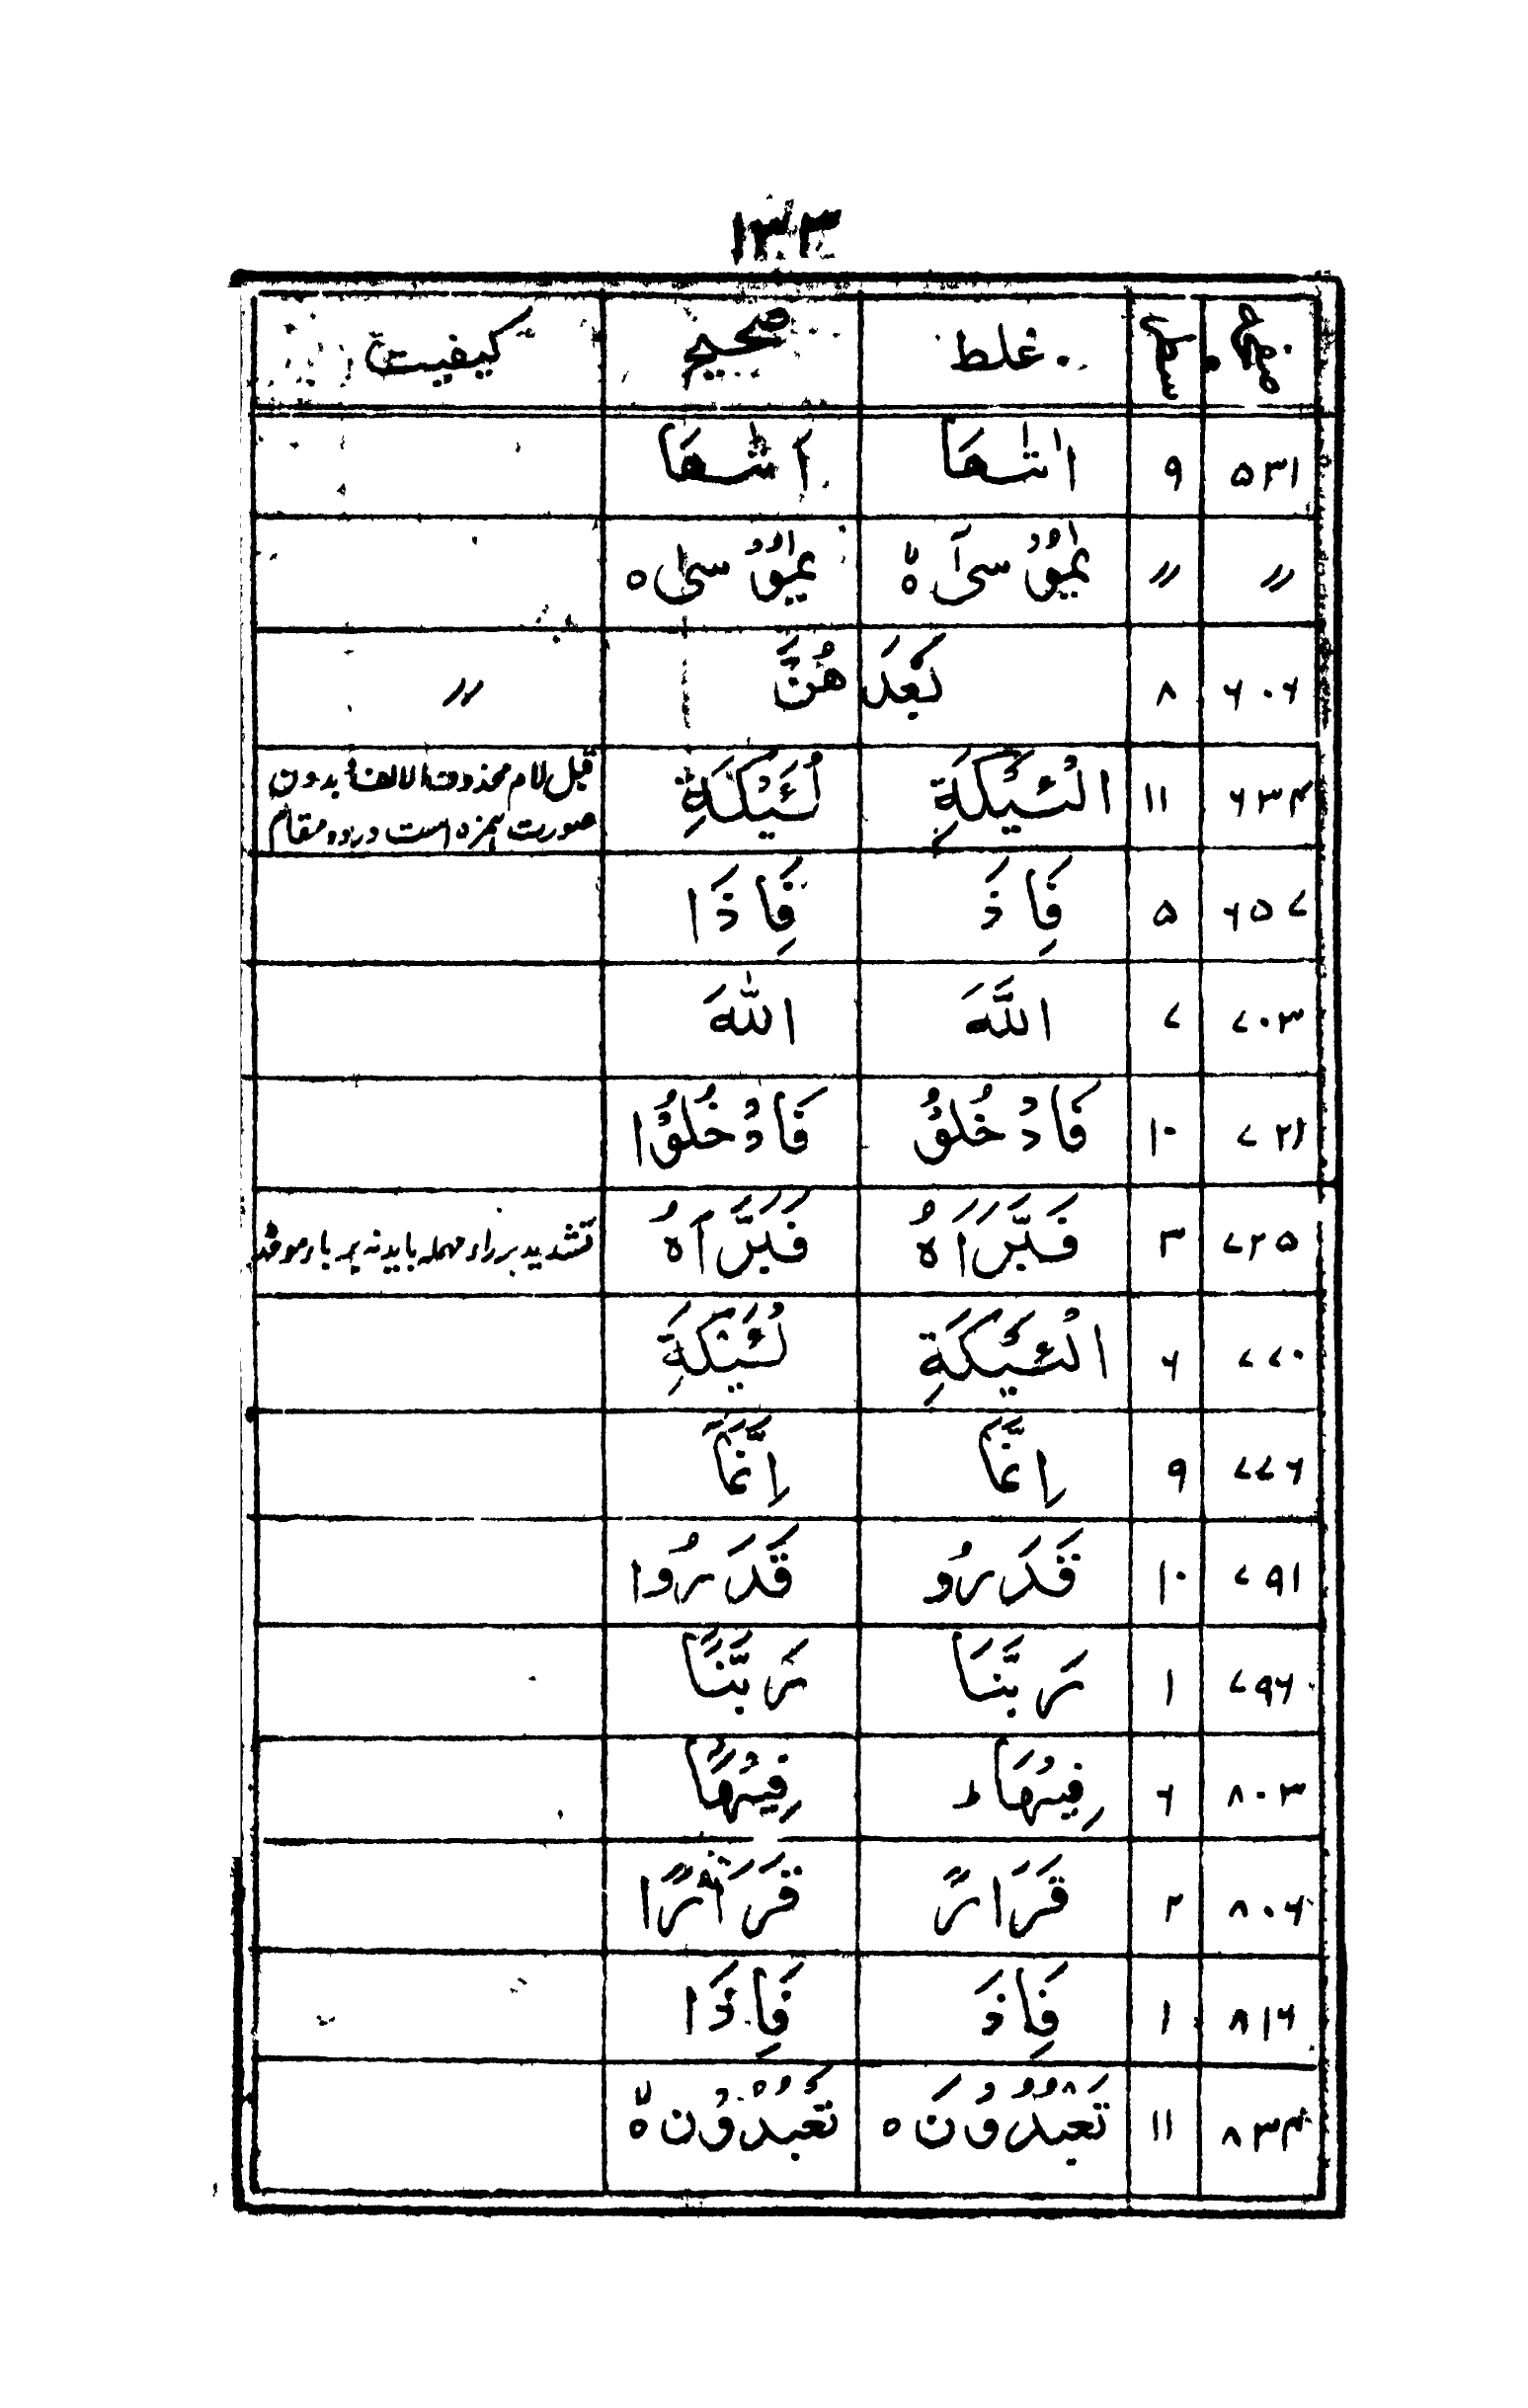 ۱۳۳
صفحہ سطر غلط صحیح کیفیت
۵۳۱ ۹ اتٰىهَا اٰتٰىهَا
〃 〃 یٰمُوْسٰۤى ہ یٰمُوْسٰى ہ
۶۰۶ ۸ بَعْدَ هُنَّ 〃
۶۳۴ ۱۱ الْئَيْكَةِ لْئَيْكَةِ قبل لام محذوف الالف بدون
صورت ہمزہ است در دو مقام
۶۵۷ ۵ فَاِذَ فَاِذَا
۷۰۳ ۷ اللَّهَ اللّٰهَ
۷۲۱ ۱۰ فَادْخُلُوْ فَادْخُلُوْا
۷۲۵ ۳ فَبَّرَاَهُ فَبَرَّاَهُ تشدید بر راء مہملہ باید نہ بر باء موحدہ
۷۷۰ ۶ الْئَيْكَةِ لْئَيْكَةِ
۷۷۶ ۹ اِنَّمَا اِنَّمَاۤ
۷۹۱ ۱۰ قَدَرُو قَدَرُوا
۷۹۶ ۱ رَبَّنَا رَبَّنَاۤ
۸۰۳ ۶ فِيْهَا ط فِيْهَاۤ
۸۰۶ ۲ قَرَارً قَرَارًا
۸۱۶ ۱ فَاِذَ فَاِذَا
۸۳۴ ۱۱ تَعْبُدُوْنَ ہ تَعْبُدُوْنِ ہ